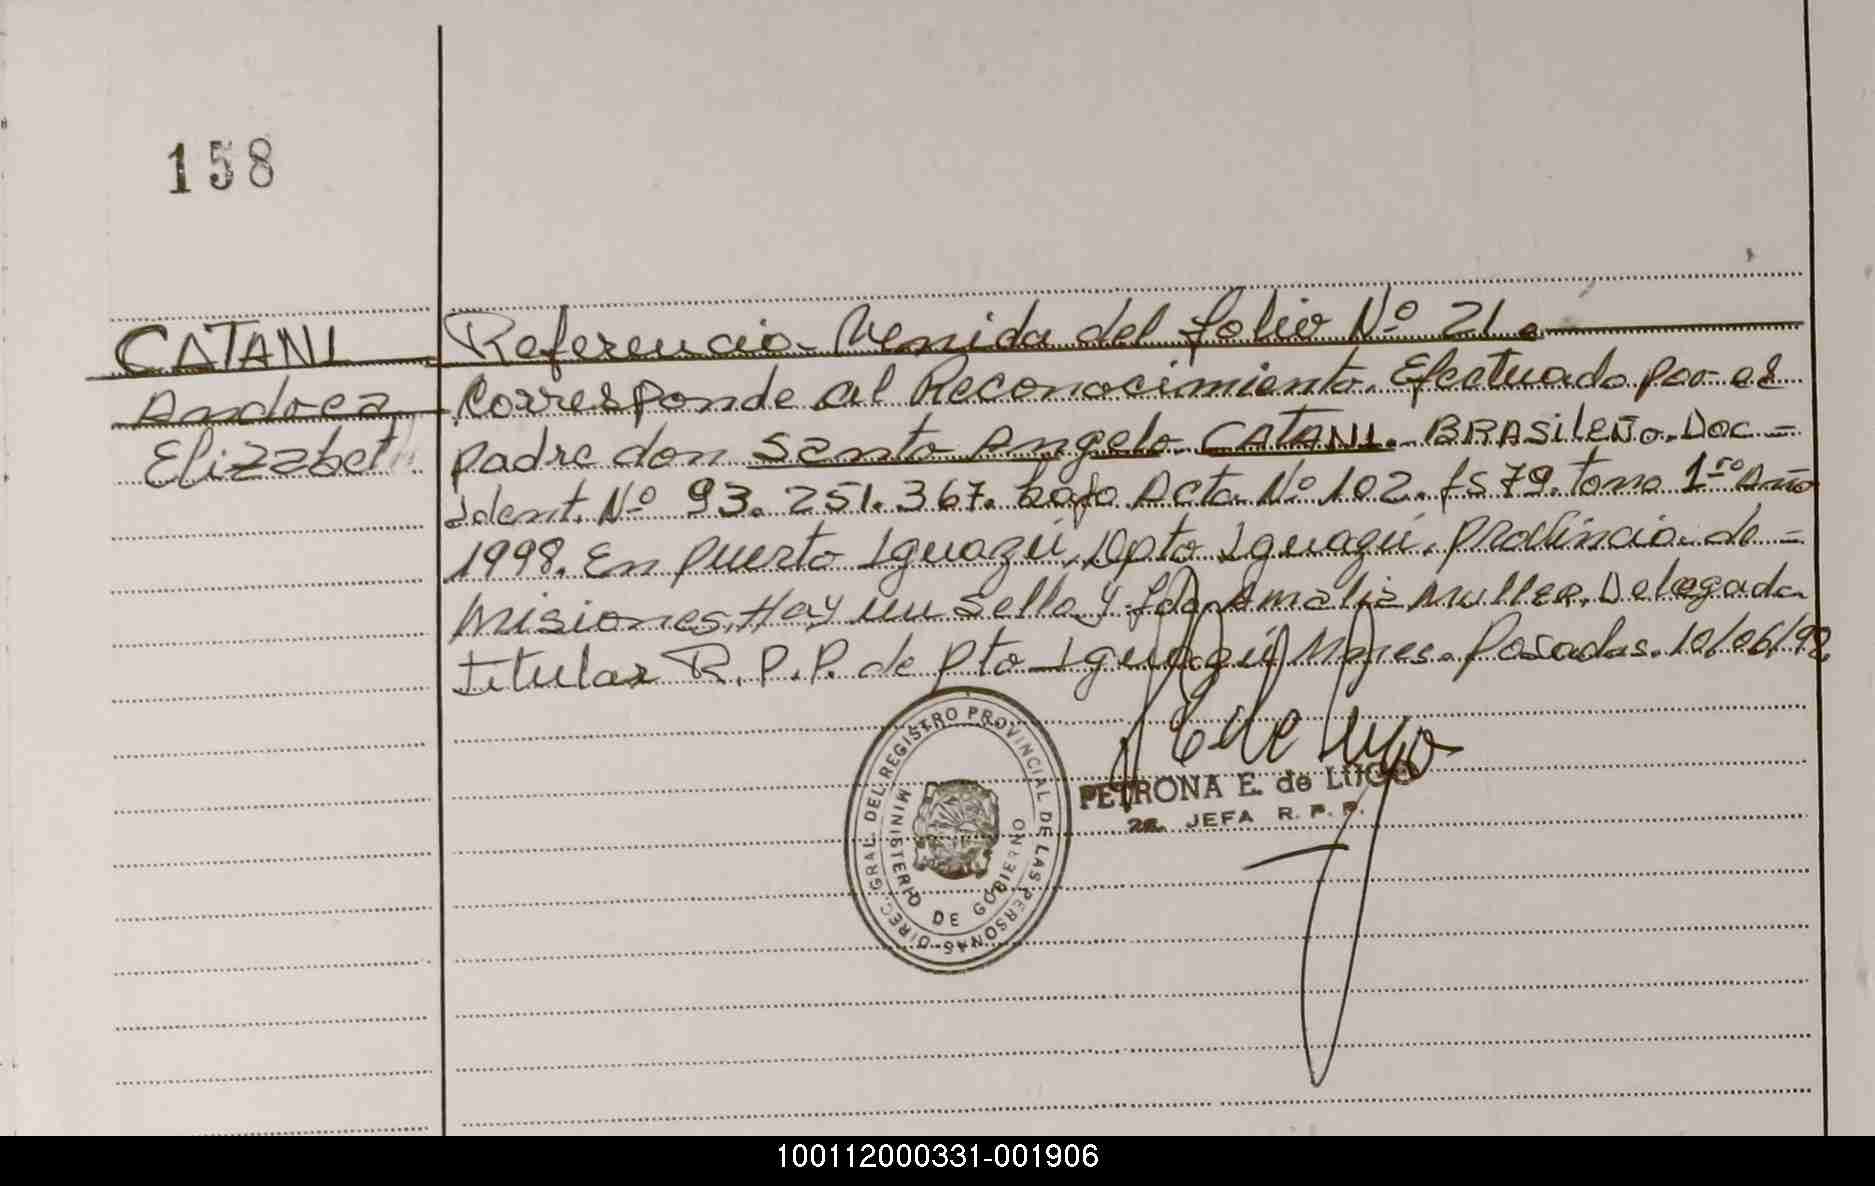 158
CATANI
Andrea
Elizabet
Referencia - Venida del folio Nº 21.
Corresponde al Reconocimiento. Efectuado por el
padre don Santo Angelo CATANI. BRASileÑo. Doc=
Ident. Nº 93.251.367. bajo Acta Nº 102. fs 79. tomo 1ro Año
1998. En puerto Iguazú, Dpto Iguazú. provincia de=
Misiones. Hay un sello y fdo. Amalia Muller. Delegada
titular R.P.P. de pto Iguazú Mnes. Posadas. 10/06/98.
PETRONA E. de LUGO
2a. JEFA R. P. P.
DIREC. GRAL. DEL REGISTRO PROVINCIAL DE LAS PERSONAS
MINISTERIO DE GOBIERNO
100112000331-001906